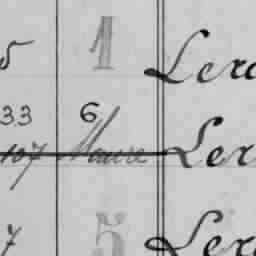 5 1 Lero
33 6
107 Maure Ler
7 5 Lero